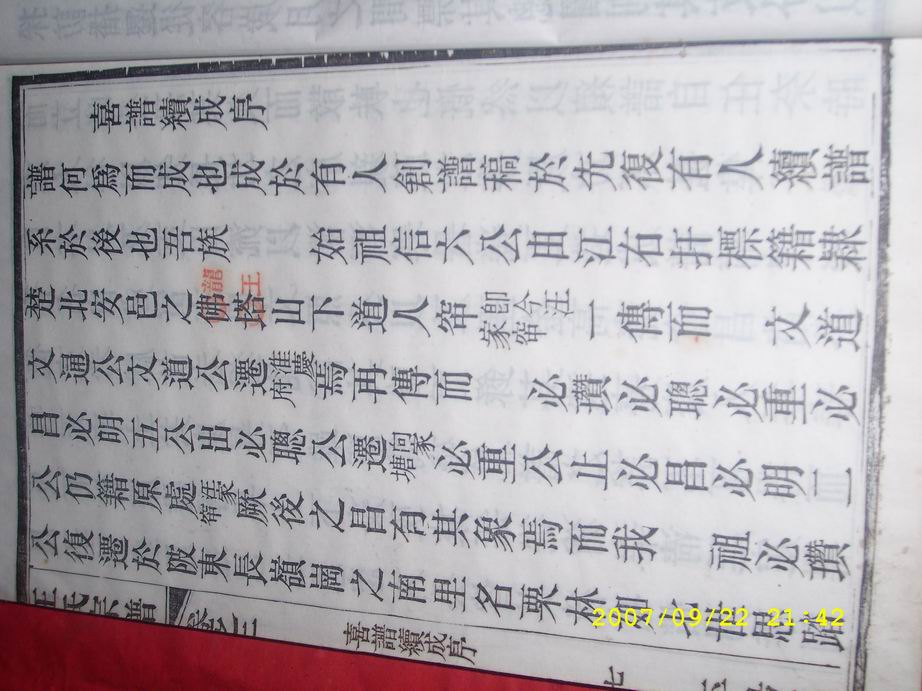 喜譜續成序
譜何為而成也成於有人創譜稿於先復有人續譜
系於後也吾族 始祖信六公由江右扞標籍隸
龍王
楚北安邑之佛塔山下道人窄卽今汪家窄一傳而 文道
文通公文道公遷淮慶府焉再傳而 必瓚必聰必重必
昌必明五公出必聰公遷向家塘必重公止必昌必明二
公仍籍原處汪家窄厥後之昌有其象焉而我 祖必瓚
公復遷於陂東長嶺崗之南里名栗林 世思
氏宗譜
喜譜續成序
七
2007/09/22 21:42